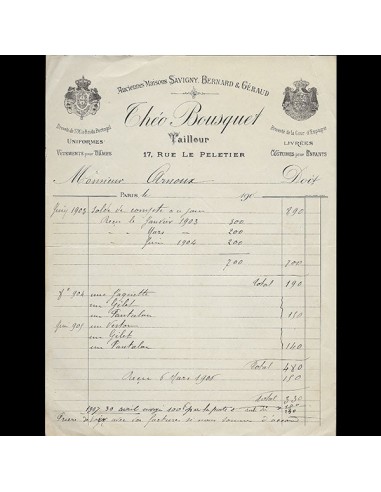 ANCIENNES MAISONS SAVIGNY, BERNARD & GÉRAUD
Théo Bousquet
Tailleur
17, RUE LE PELETIER
Brevets de S.M. le Roi de Portugal
UNIFORMES
VÊTEMENTS pour DAMES
Brevets de la Cour d'Espagne
LIVRÉES
COSTUMES pour ENFANTS
Monsieur Arnoux Doit
PARIS le 190
1903 Solde de compte a ce jour 890
Reçu le Janvier 1903 300
" " Mars " 200
" " Juin 1904 200
700 700
Total 190
904 une Jaquette
un Gilet
un Pantalon 150
905 un Veston
un Gilet
un Pantalon 140
Total 480
Reçu 6 Mars 1906 150
Total 330
1907 30 avril 100